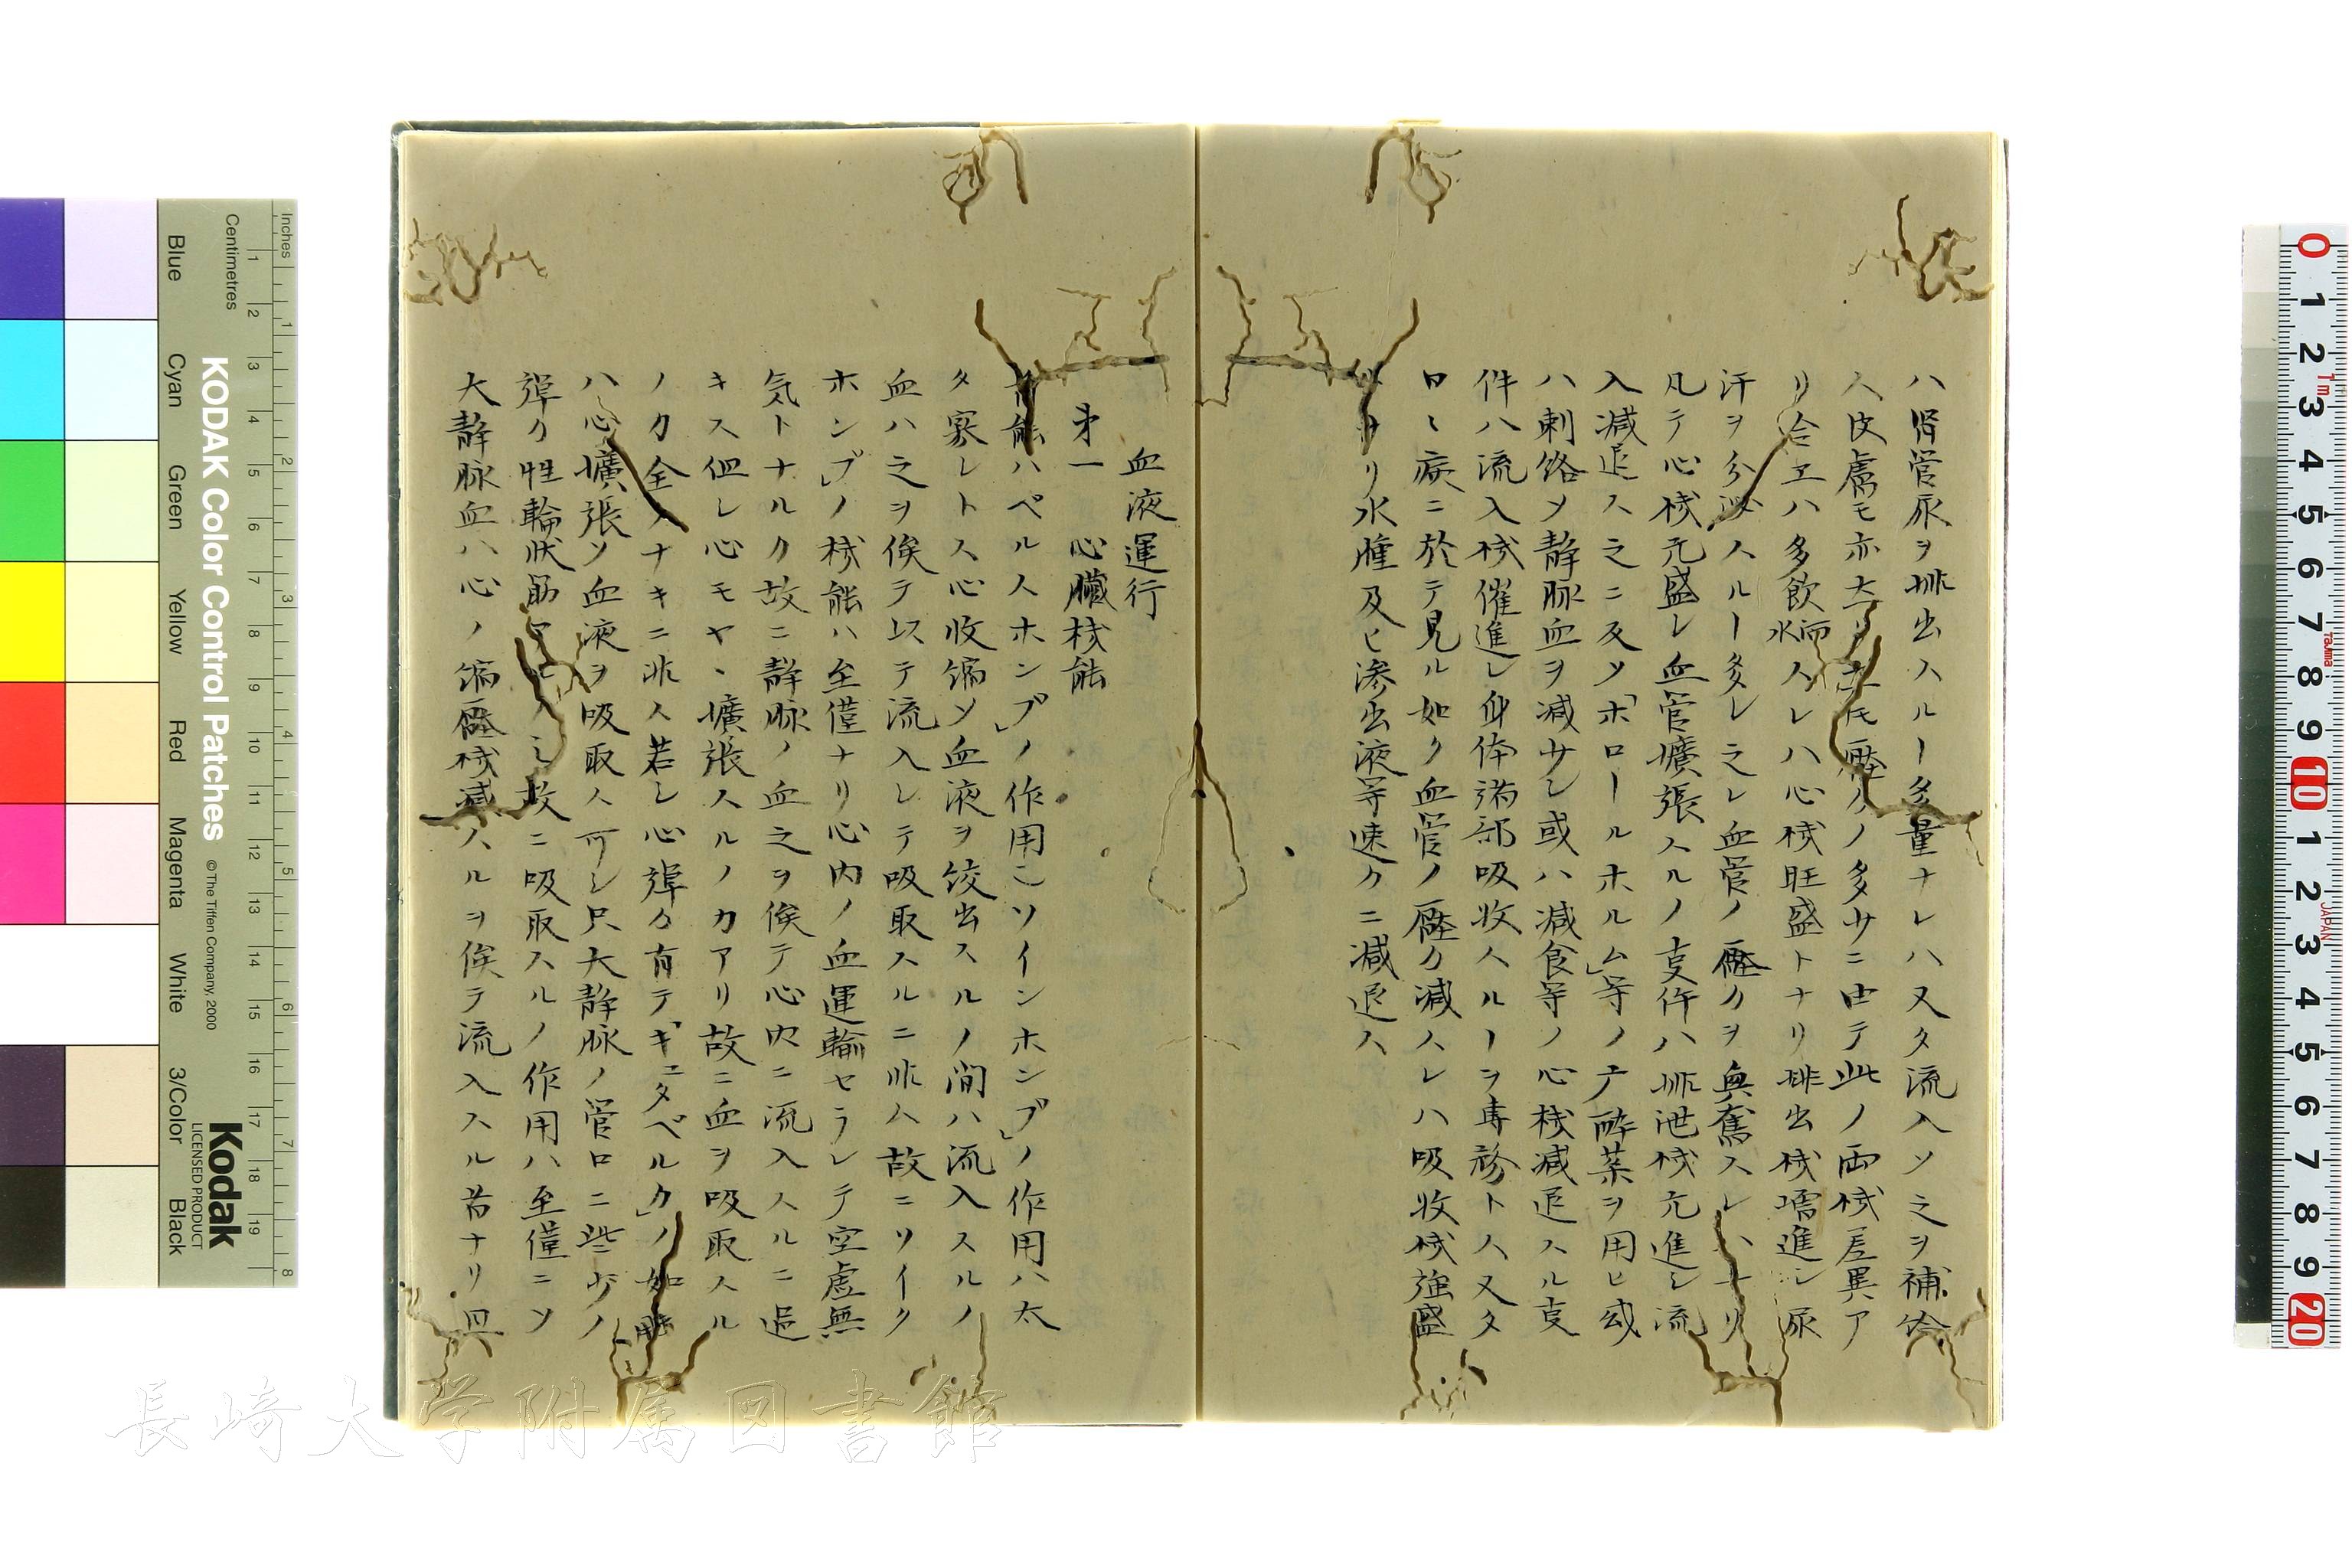 ハ腎管尿ヲ排出スルー多量ナレハ又タ流入ソ之ヲ補給
ス皮膚モ亦 圧力ノ多少ニ由テ此ノ両機差異ア
リ合エハ多飲而水スレハ心機旺盛トナリ排出機増進シ尿
汗ヲ分泌スルー多シ之レ血管ノ圧力ヲ興奮スレハナリ
凡テ心機亢盛シ血管擴張スルノ支件ハ排泄機亢進シ流
入減退ス之ニ反ソ「ホロールホルム」等ノ 酔薬ヲ用ヒ或
ハ刺絡ソ静脉血ヲ減サシ或ハ減食等ノ心機減退スル支
件ハ流入機催進シ身体諸部吸收スルーヲ専務トス又タ
口〻 ニ於テ見ル如ク血管ノ壓力減スレハ吸收機強盛
リ水腫及ヒ滲出液等速カニ減退ス
血液運行
第一 心臓機能
機能ハペルスホンプ」ノ作用ニソインホンプ」ノ作用ハ太
タ寡シトス心收縮ソ血液ヲ絞出スルノ間ハ流入スルノ
血ハ之ヲ俟テ以テ流入シテ吸取スルニ非ス故ニソイク
ホンプ」ノ機能ハ至僅ナリ心内ノ血運輸セラレテ空虚無
気トナルカ故ニ静脉ノ血之ヲ俟テ心内ニ流入スルニ過
キス但シ心モヤ、擴張スルノカアリ故ニ血ヲ吸取スル
ノカ全クナキニ非ス若シ心弾力有テ「ギュタペルカ」ノ如
ハ心擴張ソ血液ヲ吸取ス可シ只大静脉ノ管口ニ些少ノ
弾力性輪状筋 故ニ吸取スルノ作用ハ至僅ニソ
大静脉血ハ心ノ縮壓機減スルヲ俟テ流入スル者ナリ且
KODAK Color Control Patches
© The Tiffen Company, 2000
Kodak
LICENSED PRODUCT
Inches
Centimetres
Blue
Cyan
Green
Yellow
Red
Magenta
White
3/Color
Black
Tajima
JAPAN
長崎大学附属図書館